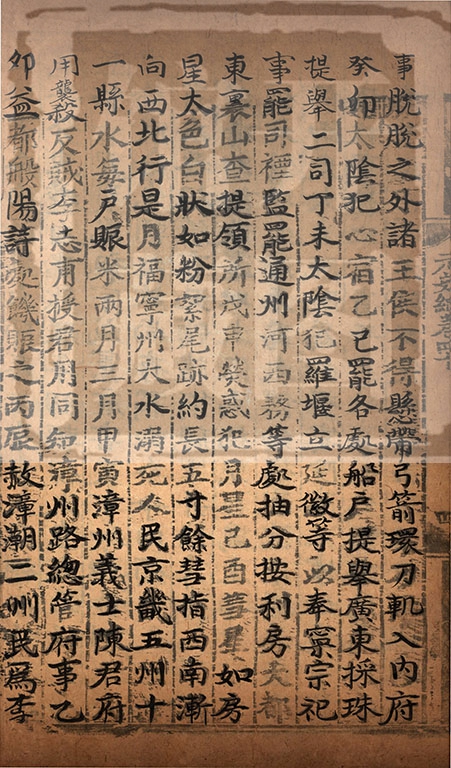 事脫脫之外諸王侯不得懸帶弓箭環刀輒入內府
癸卯太陰犯心宿乙巳罷各處船戶提舉廣東採珠
提舉二司丁未太陰犯羅堰立延徽等以奉寧宗祀
事罷司禋監罷通州河西務等處抽分按利房大都
東裏山查提領所戊申熒惑犯月星己酉彗星如房
星大色白狀如粉絮尾跡約長五寸餘彗指西南漸
向西北行是月福寧州大水溺死人民京畿五州十
一縣水每戶賑米兩月三月甲寅漳州義士陳君
用襲殺反賊李志甫授君用同知漳州路總管府事乙
卯益都般陽詩處饑賑之丙辰赦漳潮二州民爲李